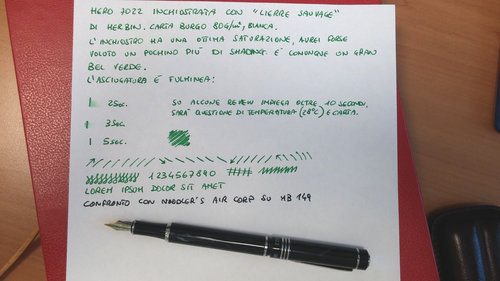 HERO 7022 INCHIOSTRATA CON "LIERRE SAUVAGE"
DI HERBIN. CARTA BURGO 80G/m², BIANCA.
L'INCHIOSTRO HA UNA OTTIMA SATURAZIONE, AVREI FORSE
VOLUTO UN POCHINO PIÙ DI SHADING. È COMUNQUE UN GRAN
BEL VERDE.
L'ASCIUGATURA È FULMINEA:
2sec. SU ALCUNE REVIEW IMPIEGA OLTRE 10 SECONDI,
SARÀ QUESTIONE DI TEMPERATURA (28°C) E CARTA.
3sec.
5sec.
1234567890 ####
LOREM IPSUM DOLOR SIT AMET
CONFRONTO CON NOODLER'S AIR CORP SU MB 149